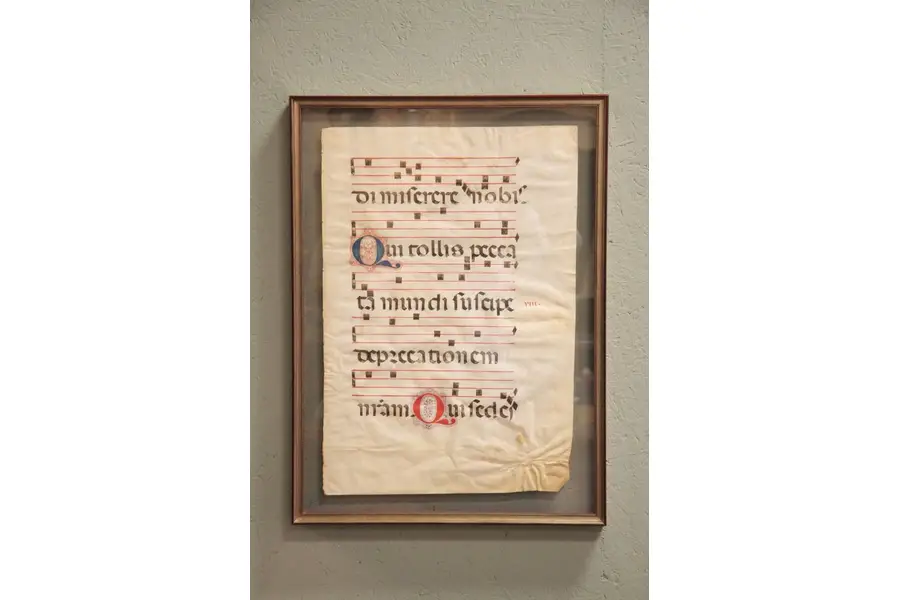 di miserere nobis
Qui tollis pecca
ta mundi suscipe
deprecationem
nr̃am. Qui sedes